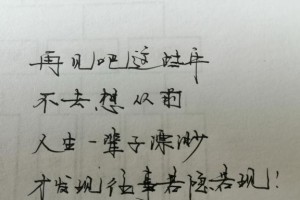 再见吧这些年
不去想从前
人生一辈子漂渺
才发现往事若隐若现!